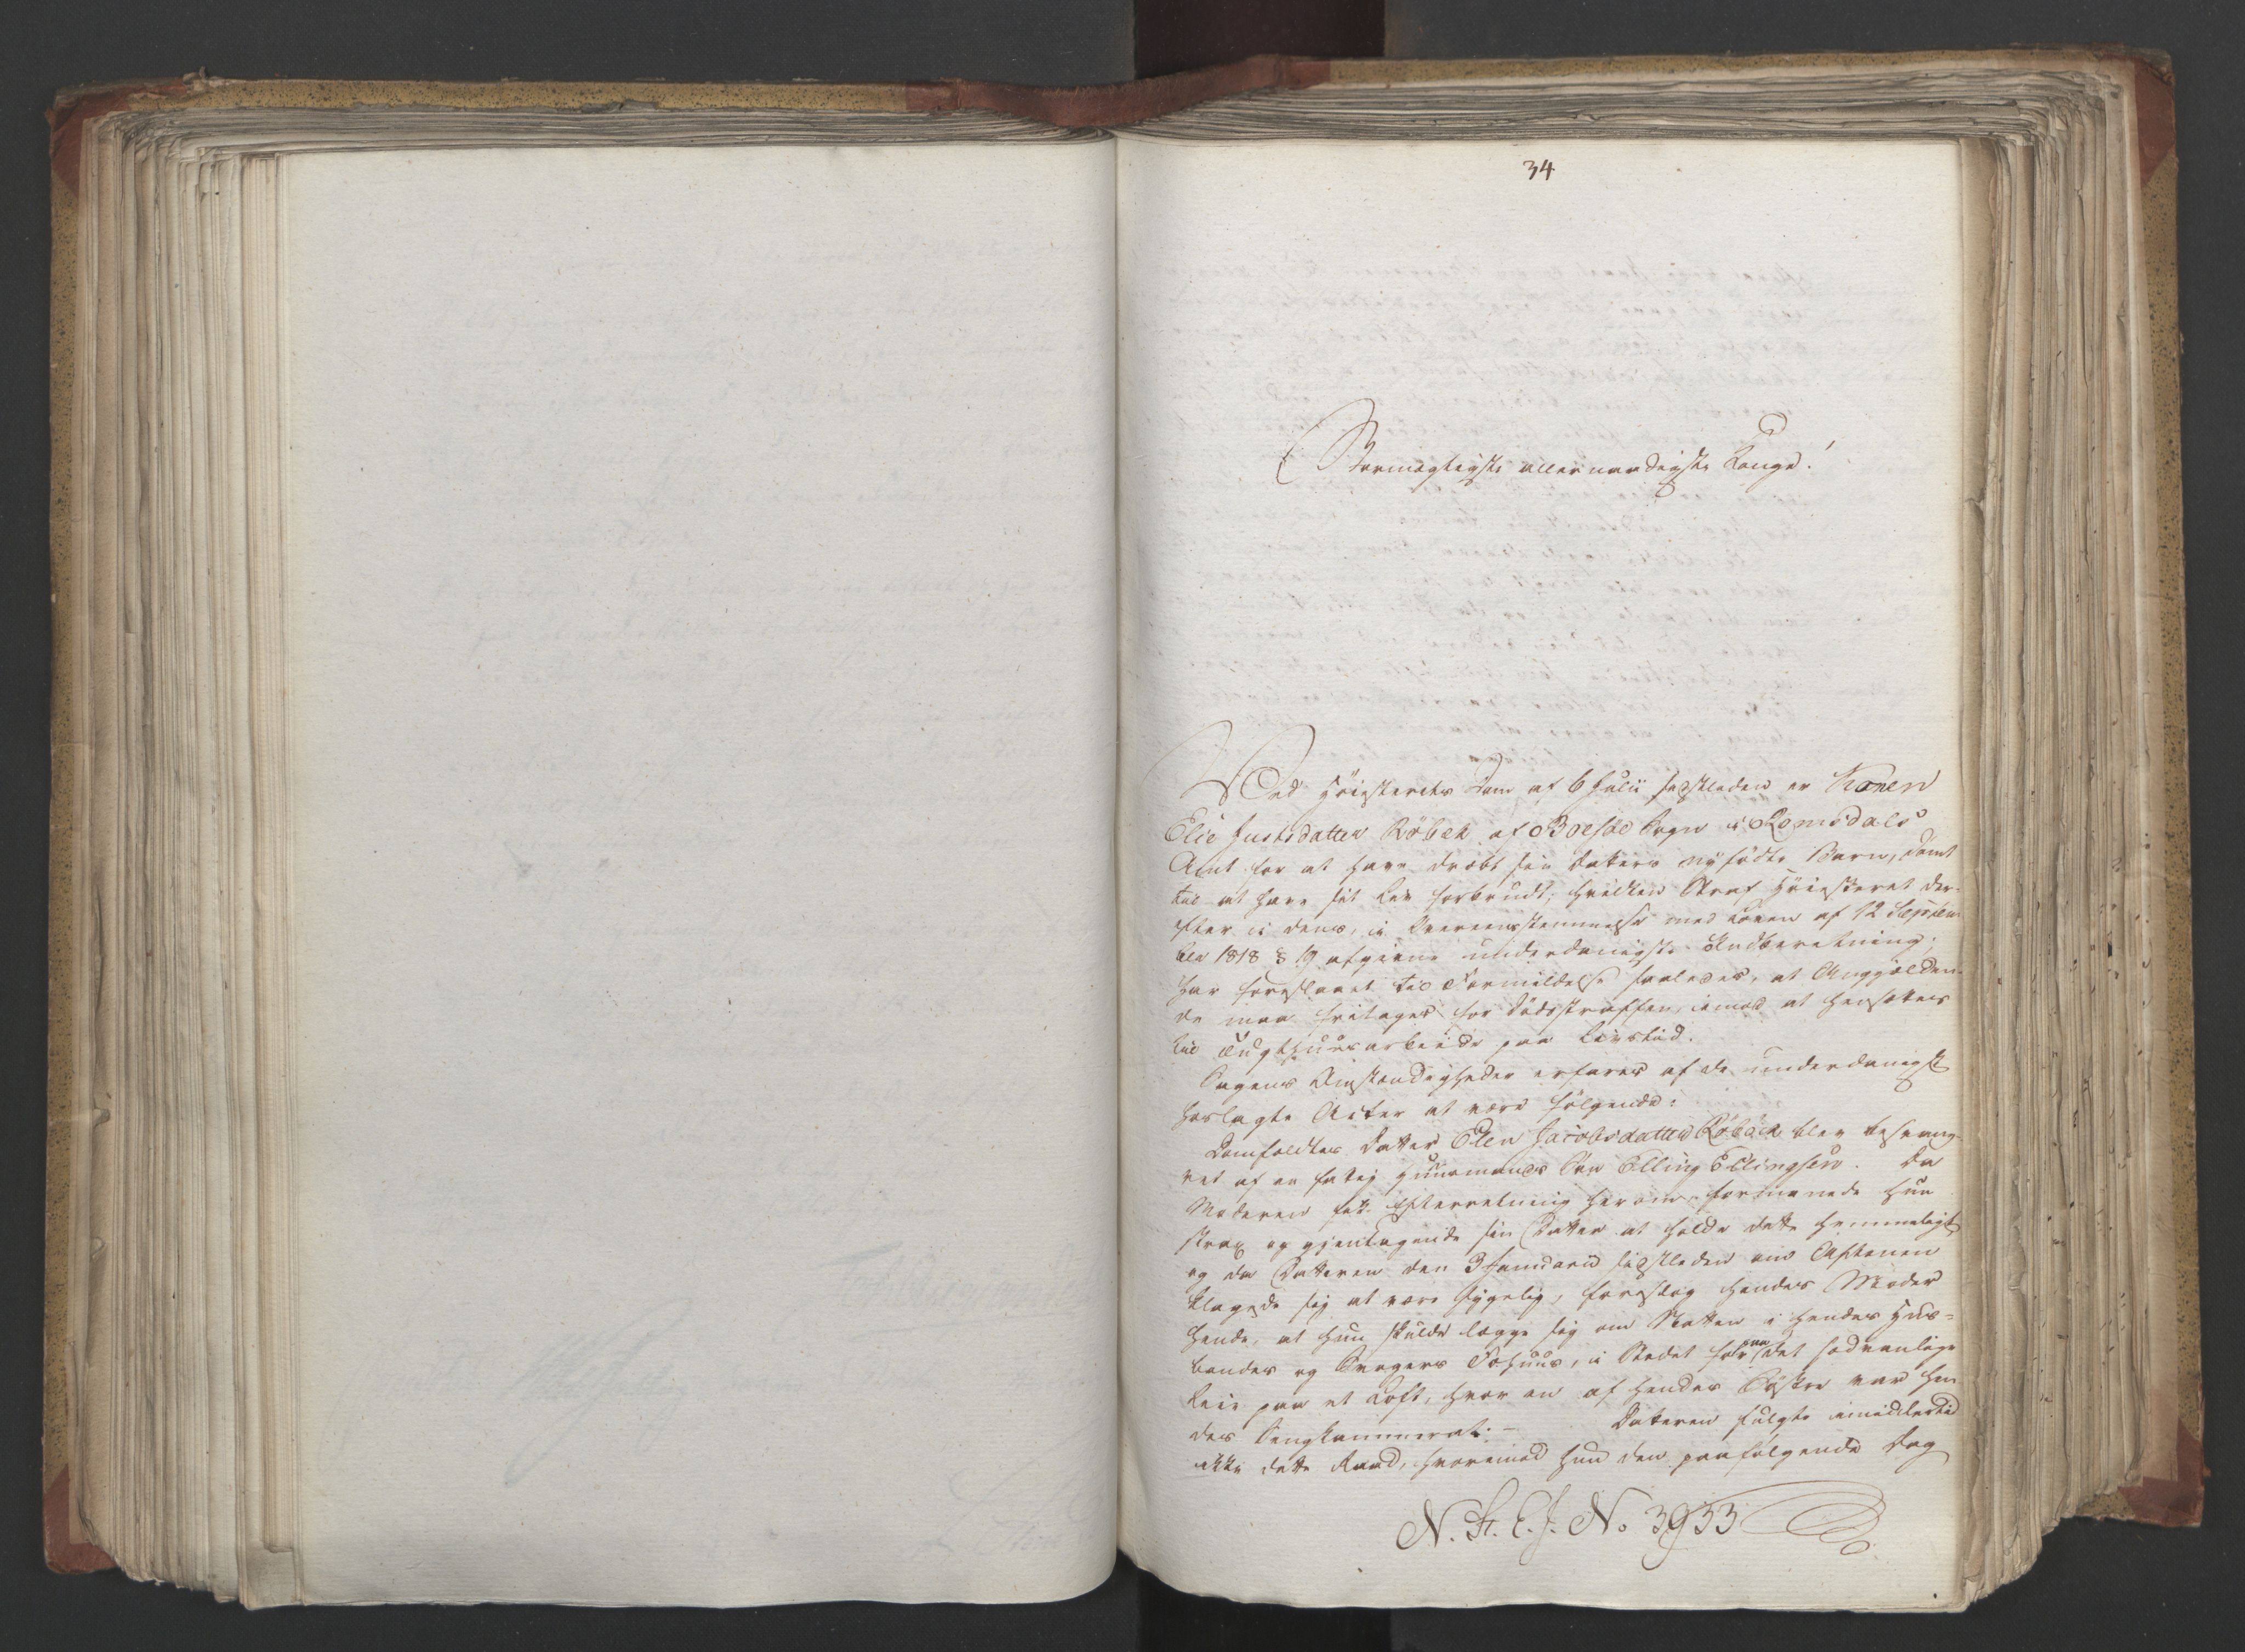 34
Stormægtigste allernaadigste Konge!
Ved Høiesterets Dom af 6 Julii sidstleden er Konen
Elie Justsdatter Röbek af Bolsöe Sogn i Romsdals
Amt for at have dræbt sin Datters nyfødte Barn, dømt
til at have sit Liv forbrudt; hvilken Straf Høiesteret der-
efter i dens, i Overeensstemmelse med Loven af 12 Septem-
ber 1818 § 19 afgivne underdanigste Indberetning,
har foreslaaet til Formildelse saaledes, at Angjælden-
de maa fritages for Dödsstraffen, imod at hensættes
til Tugthuusarbeide paa Livstid.
Sagens Omstændigheder erfares af de underdanigst
hoslagte Acter at være følgende:
Domfældtes Datter Elen Jacobsdatter Röbek blev besvang-
ret af en fattig Huusmands Søn Elling Ellingsen. Da
Moderen fik Efterretning herom, formanede hun
strax og gjentagende sin Datter at holde dette hemmeligt,
og da Datteren den 3 Januarii sidstleden om Aftenen
klagede sig at være sygelig, foreslog hendes Moder
hende, at hun skulde lægge sig om Natten i hendes Huus-
bondes og Svogers Fæhuus, i Stedet for paa det sædvanlige
Leie paa et Loft, hvor en af hendes Søstre var hen-
des Sengkammerat. - Datteren fulgte imidlertid
ikke dette Raad, hvorimod hun den paafølgende Dag
N. St. E. J. No 3933